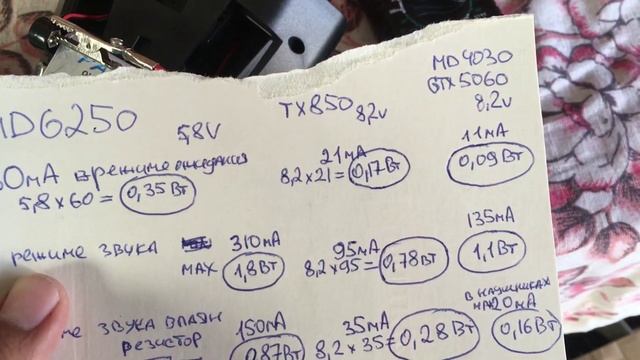 MD6250
5,8V
TX850 8,2V
MD4030
GTX5060
8,2V
60мА в режиме ожидания
5,8 x 60 = 0,35 Вт
21мА
8,2 x 21 = 0,17 Вт
11мА
0,09 Вт
режиме звука
310мА
MAX 1,8 Вт
95мА
8,2 x 95 = 0,78 Вт
135мА
1,1 Вт
ме звука впаян
резистор
150мА
0,87 Вт
35мА
8,2 x 35 = 0,28 Вт
в наушниках
на 20мА
0,16 Вт